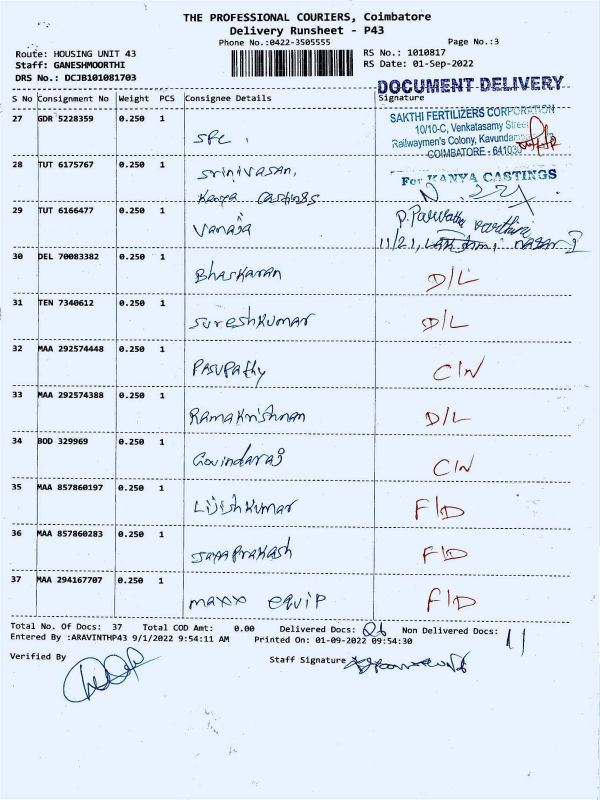 THE PROFESSIONAL COURIERS, Coimbatore
Delivery Runsheet - P43
Phone No.:0422-3505555
Page No.:3
Route: HOUSING UNIT 43
RS No.: 1010817
Staff: GANESHMOORTHI
RS Date: 01-Sep-2022
DRS No.: DCJB101081703
DOCUMENT DELIVERY
S No Consignment No Weight PCS Consignee Details Signature
27 GDR 5228359 0.250 1
SAKTHI FERTILIZERS CORPORATION
10/10-C, Venkatasamy Street
Railwaymen's Colony, Kavundam
COIMBATORE - 641030
28 TUT 6175767 0.250 1 Srinivasan,
Kanya Castings
For KANYA CASTINGS
29 TUT 6166477 0.250 1 Vanaja
P. Parvathi
11/21,
30 DEL 70083382 0.250 1 Bhaskaran D/L
31 TEN 7340612 0.250 1 Sureshkumar D/L
32 MAA 292574448 0.250 1 Pasupathy C/N
33 MAA 292574388 0.250 1 Ramakrishnan D/L
34 BOD 329969 0.250 1 Govindaraj C/N
35 MAA 857860197 0.250 1 Lijishkumar F/D
36 MAA 857860283 0.250 1 Jayaprakash F/D
37 MAA 294167707 0.250 1 maxx equip F/D
Total No. Of Docs: 37 Total COD Amt: 0.00 Delivered Docs: 26 Non Delivered Docs: 11
Entered By :ARAVINTHP43 9/1/2022 9:54:11 AM Printed On: 01-09-2022 09:54:30
Verified By
Staff Signature